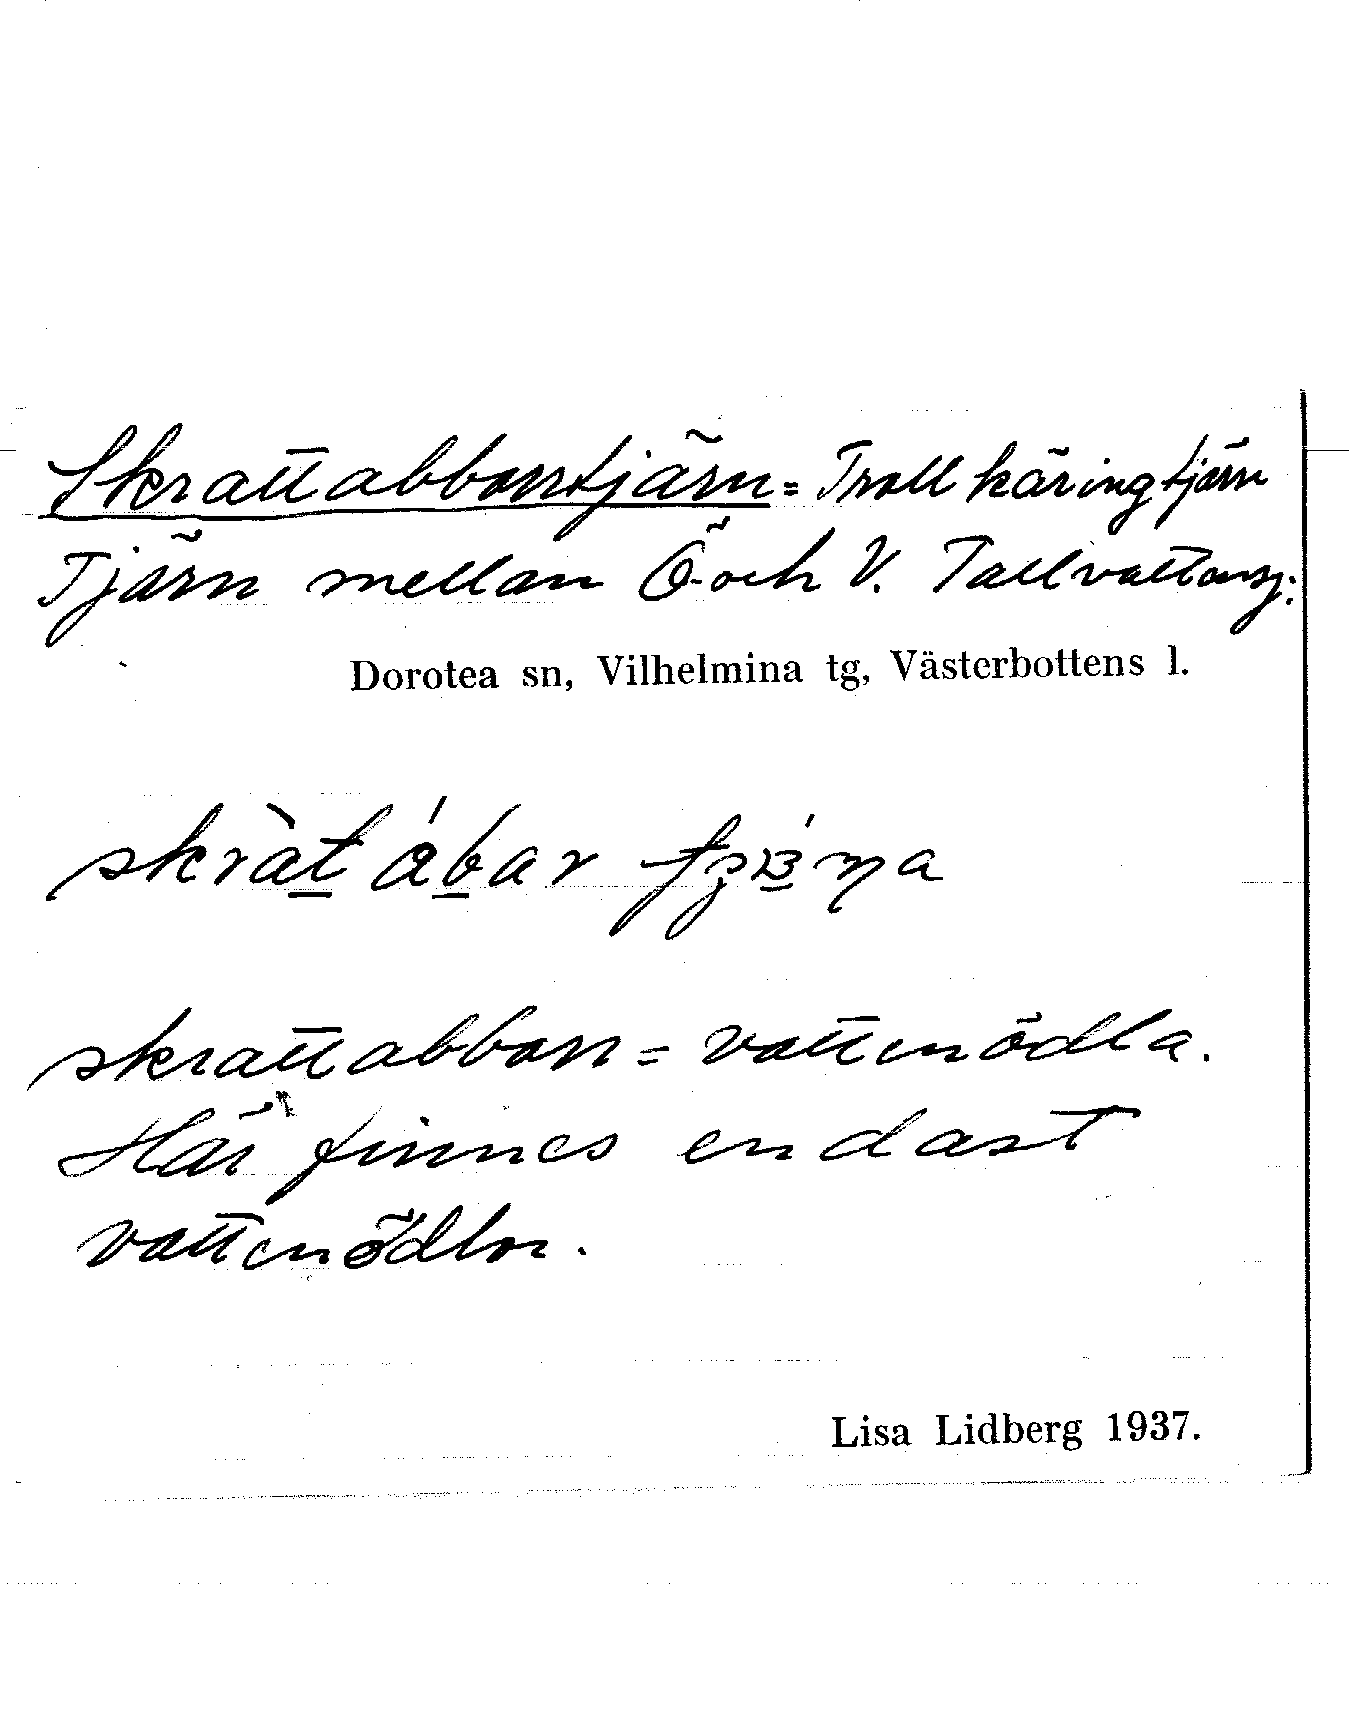 Skrattabborrtjärn = Trollkäringtjärn
Tjärn mellan Ö. och V. Tallvattensj:
Dorotea sn, Vilhelmina tg, Västerbottens l.
skrattabborr = vattenödla.
Här finnes endast
vattenödlor.
Lisa Lidberg 1937.